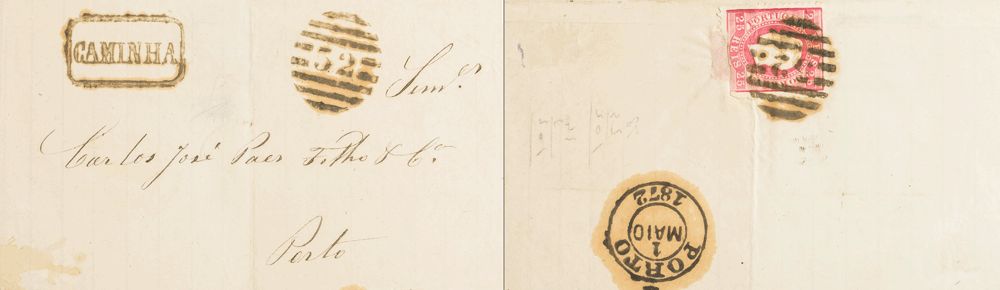 CAMINHA
52
Senr.
Carlos José Paes Filho & Ca.
Porto
PORTUGAL
25 REIS 25
PORTO
1
MAIO
1872